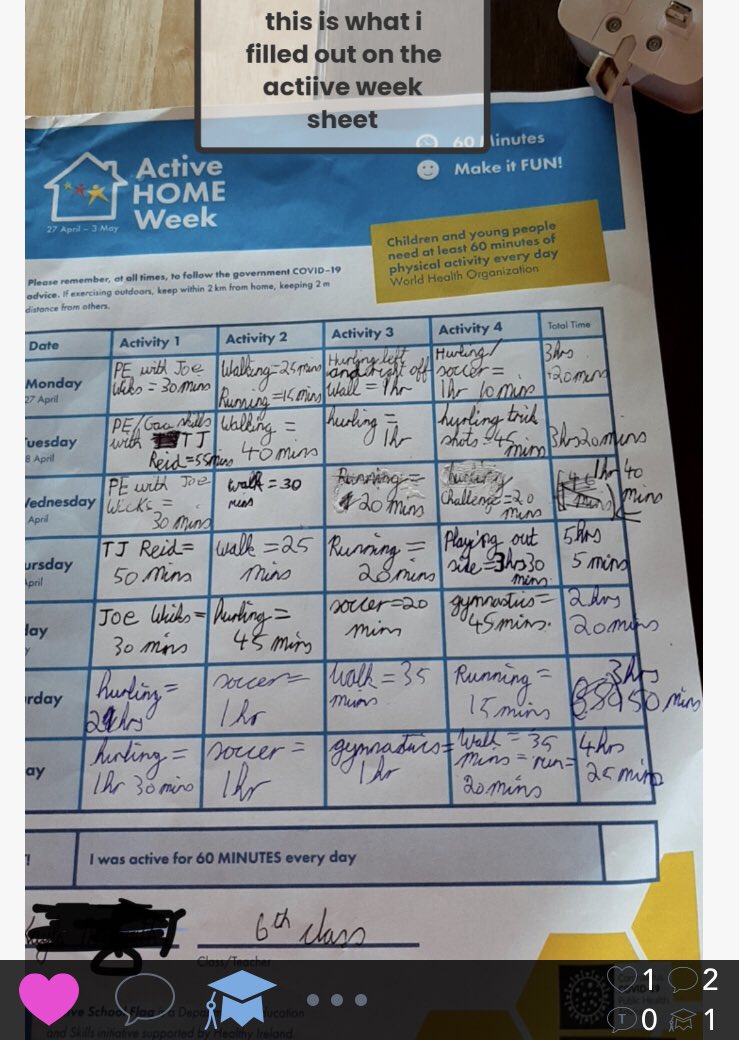 this is what i
filled out on the
actiive week
sheet
60 Minutes
Make it FUN!
Active
HOME
Week
27 April – 3 May
Children and young people
need at least 60 minutes of
physical activity every day
World Health Organization
Please remember, at all times, to follow the government COVID-19
advice. If exercising outdoors, keep within 2 km from home, keeping 2 m
distance from others.
Date Activity 1 Activity 2 Activity 3 Activity 4 Total Time
Monday
27 April
PE with Joe
Wiks = 30 mins
Walking = 25 mins
Running = 15 mins
Hurling left
and right off
Wall = 1hr
Hurling/
soccer =
1hr 10 mins
3hrs
20 mins
uesday
8 April
PE/Gaa skills
with TJ
Reid = 55 mins
Walking =
40 mins
hurling =
1hr
hurling trick
shots = 45
mins
3hrs 20 mins
Wednesday
April
PE with Joe
Wicks =
30 mins
walk = 30
mins
Running =
20 mins
hurling
Challenge = 20
mins
1hr 40
mins
ursday
April
TJ Reid =
50 mins
Walk = 25
mins
Running =
20 mins
Playing out
side = 3hrs 30
mins
5hrs
5 mins
day
Joe Wicks =
30 mins
hurling =
45 mins
soccer = 20
mins
gymnastics =
45 mins.
2hrs
20 mins
rday
hurling =
2hrs
soccer =
1hr
Walk = 35
mins
Running =
15 mins
3hrs
50 mins
ay
hurling =
1hr 30 mins
soccer =
1hr
gymnastics =
1hr
Walk = 35
mins = run =
20 mins
4hrs
25 mins
I was active for 60 MINUTES every day
6th class
Class/Teacher
ve School Flag is a Depa ducation
and Skills initiative supported by Healthy Ireland.
COVID
Public Health
1 2
T 0 1